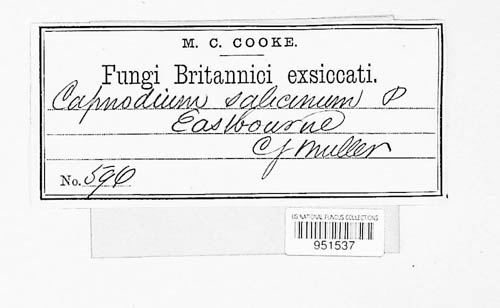 M. C. COOKE.
Fungi Britannici exsiccati.
Capnodium salicinum P
Eastbourne
CJ Muller
No. 596
US NATIONAL FUNGUS COLLECTIONS
951537